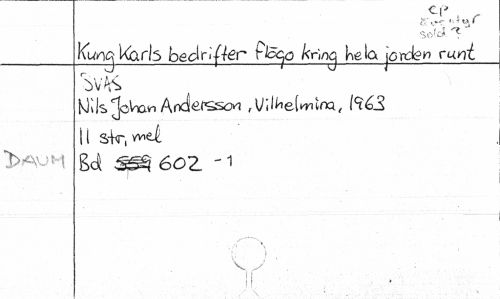 EP
Äventyr
sold?
Kung Karls bedrifter flögo kring hela jorden runt
SVAS
Nils Johan Andersson, Vilhelmina, 1963
11 str, mel
DAUM Bd 559 602 -1